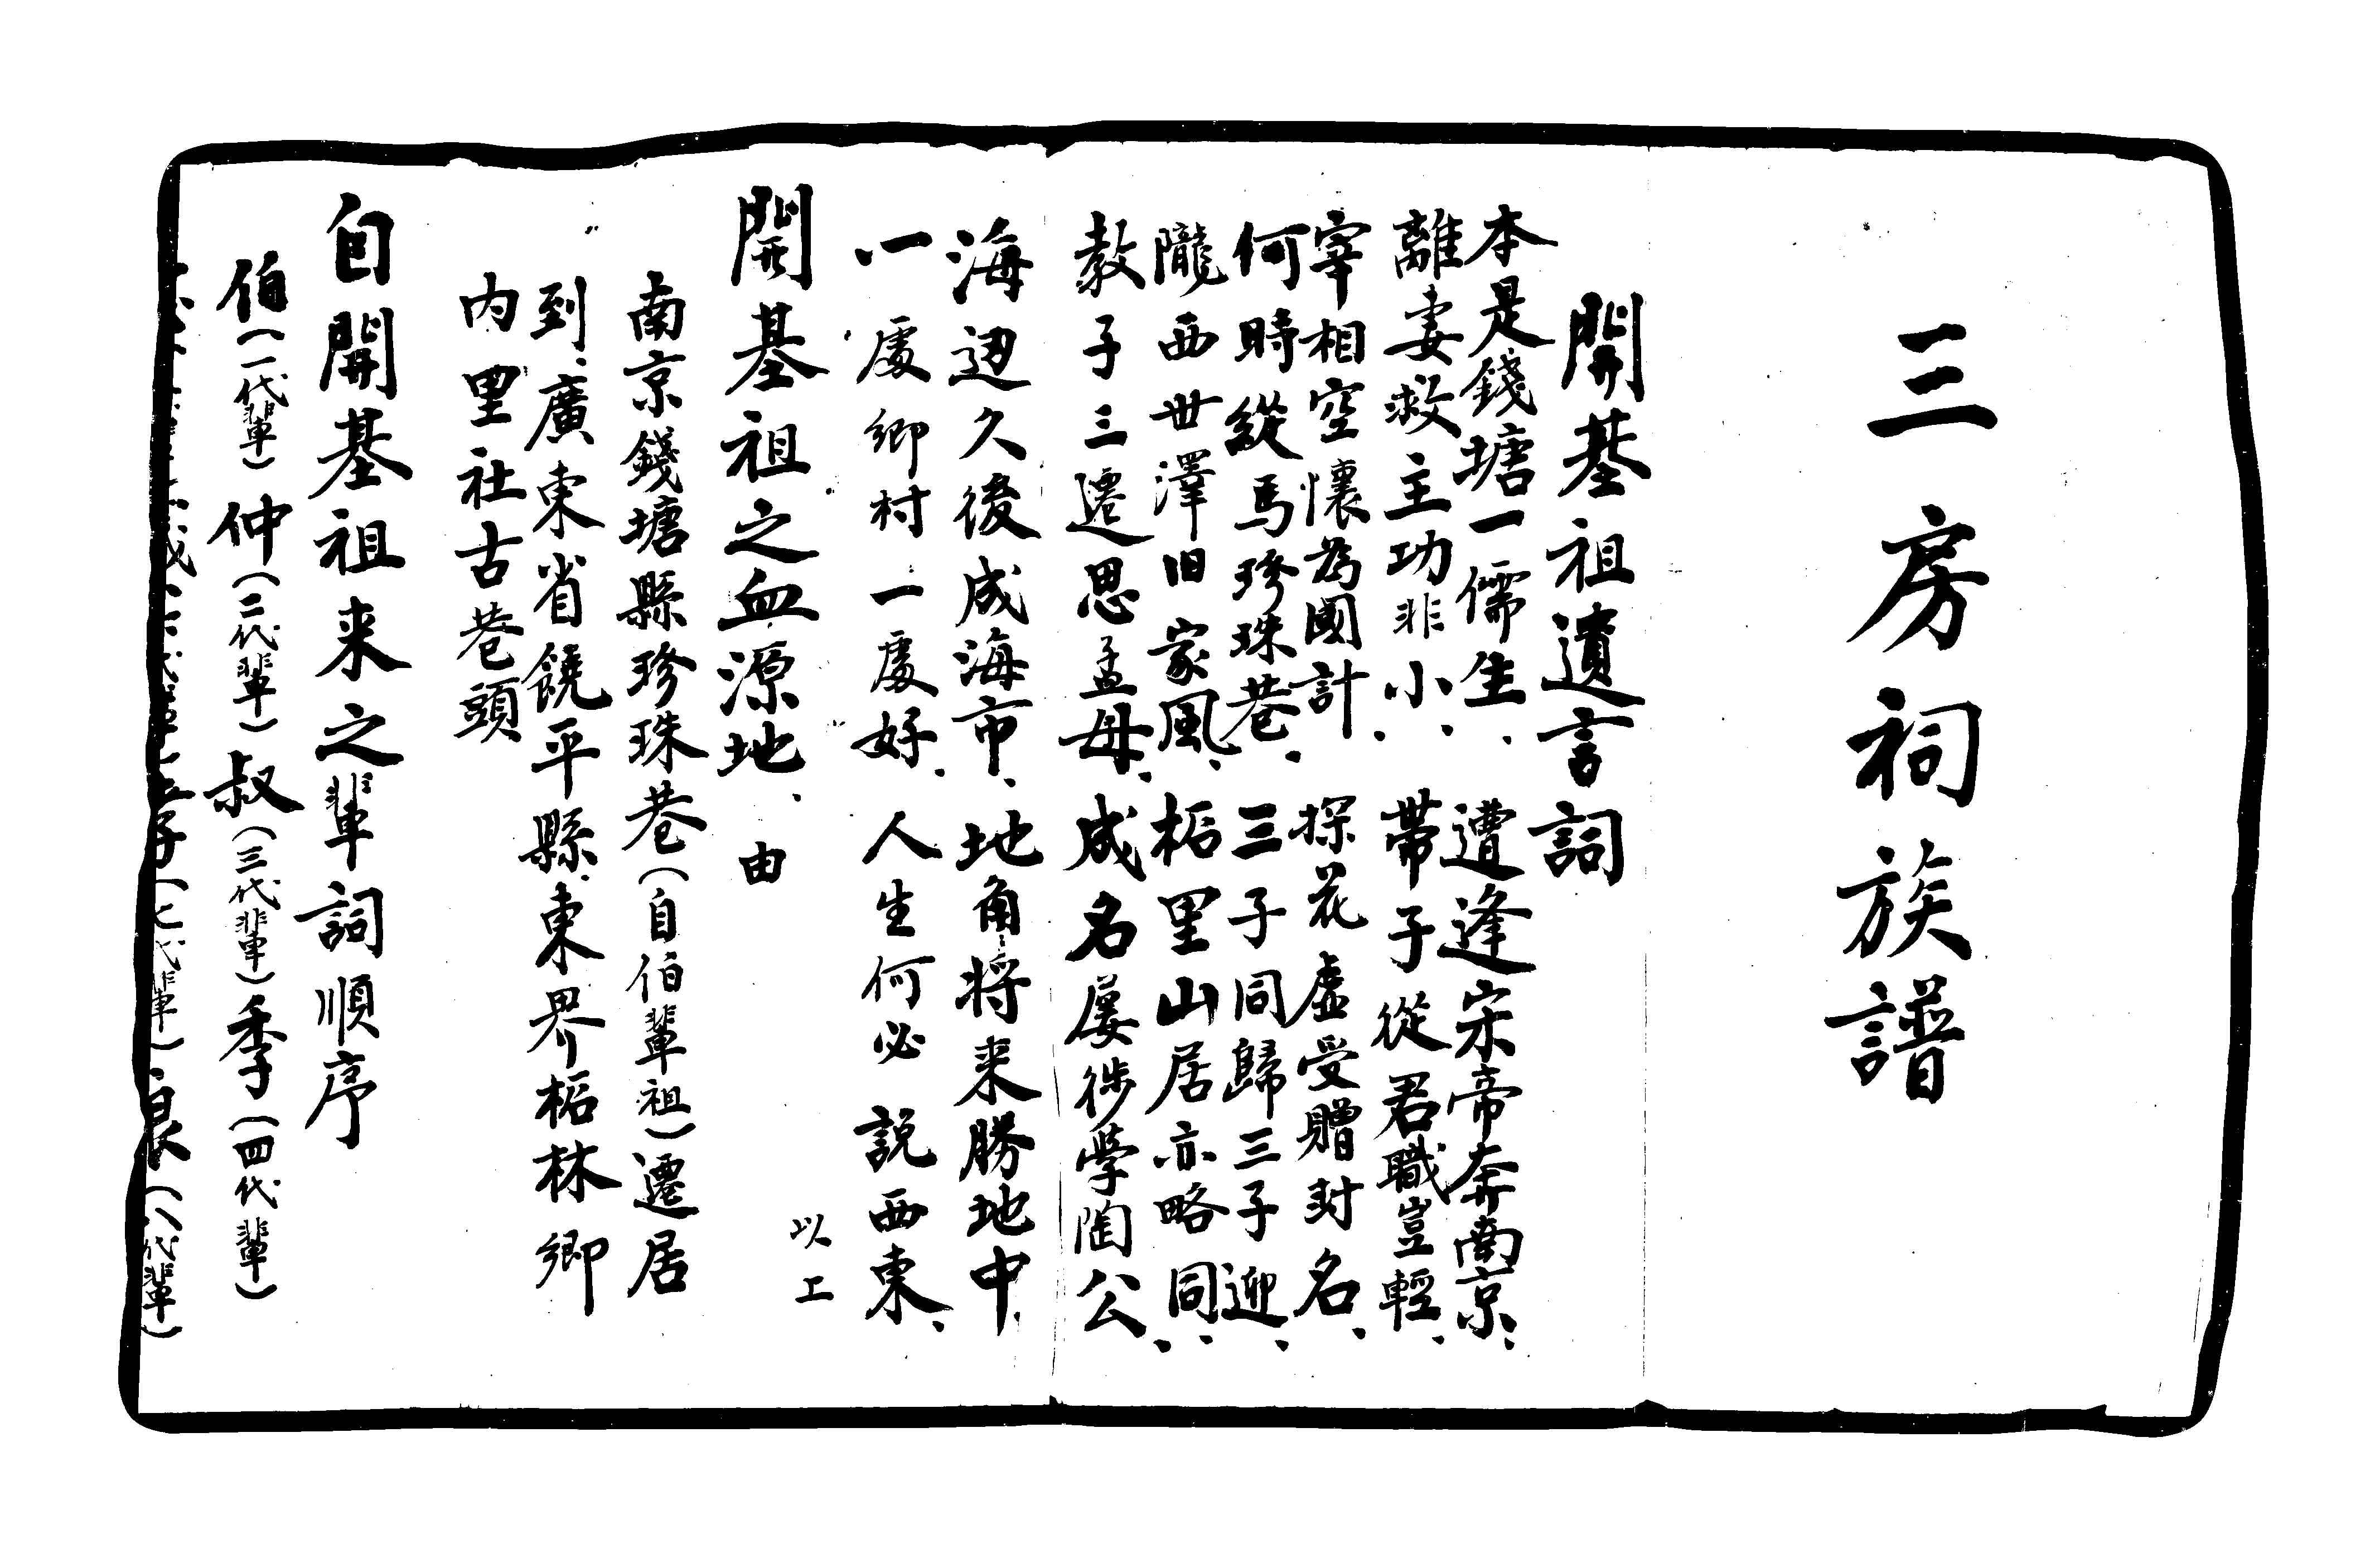 三房祠族譜
開基祖遺言詞
本是錢塘一儒生、遭逢宋帝奔南京、
離妻救主功非小、帶子從君職豈輕、
宰相空懷為國計、探花虛受贈封名、
何時縱馬珍珠巷、三子同歸三子迎、
隴西世澤旧家風、柘里山居亦略同、
教子三遷思孟母、成名屢徙學陶公、
海边久後成海市、地角將来勝地中、
一處鄉村一處好、人生何必說西東、
以上
開基祖之血源地、由
南京錢塘縣珍珠巷(自伯輩祖)遷居
到、廣東省饒平縣、東界柘林鄉
内里社古巷頭
自開基祖来之輩詞順序
伯(一代輩)仲(二代輩)叔(三代輩)季(四代輩)
(七代輩)、(八代輩)